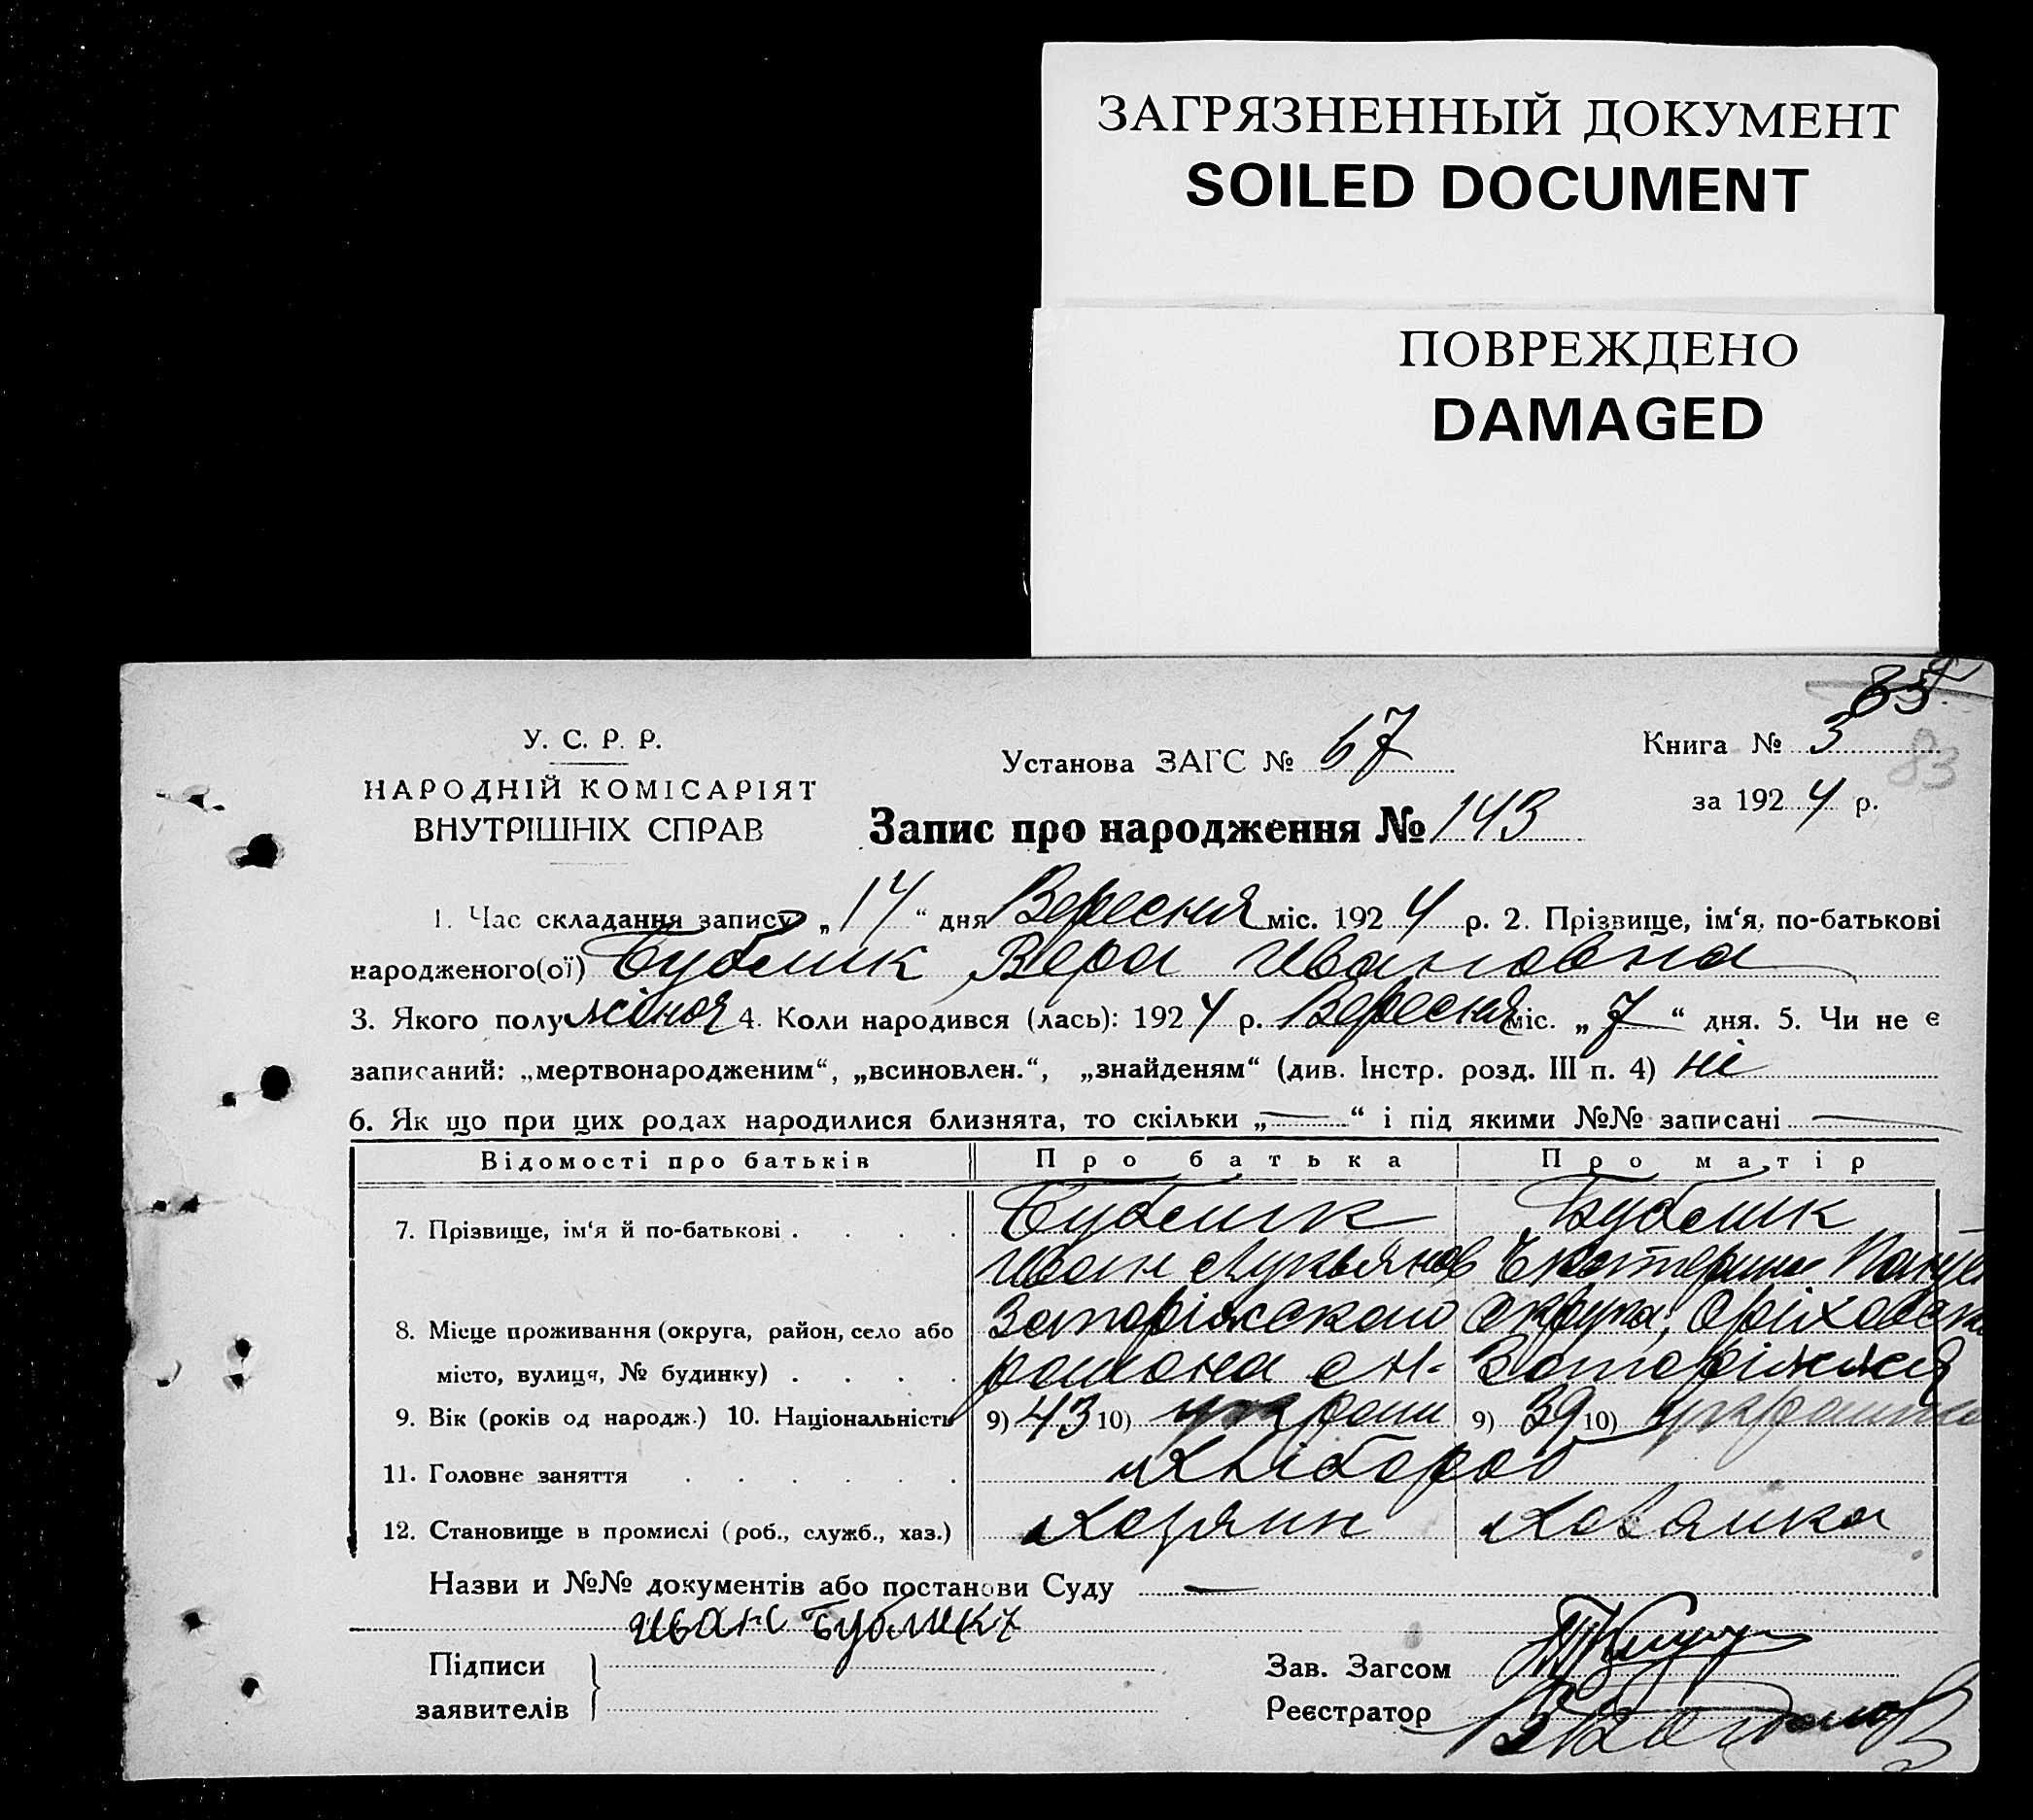 ЗАГРЯЗНЕННЫЙ ДОКУМЕНТ
SOILED DOCUMENT
ПОВРЕЖДЕНО
DAMAGED
83
У. С. Р. Р.
НАРОДНІЙ КОМІСАРІЯТ
ВНУТРІШНІХ СПРАВ
Установа ЗАГС № 67
Книга № 3
за 1924 р.
Запис про народження № 143
1. Час складання запису „17“ дня Вересня міс. 1924 р. 2. Прізвище, ім‘я, по-батькові
народженого(ої) Бублик Вера Ивановна
3. Якого полу жіноя 4. Коли народився (лась): 1924 р. Вересня міс. „7“ дня. 5. Чи не є
записаний: „мертвонародженим“, „всиновлен.“, „знайденям“ (див. Інстр. розд. III п. 4) ні
6. Як що при цих родах народилися близнята, то скільки „—“ і під якими №№ записані —
Відомості про батьків Про батька Про матір
7. Прізвище, ім‘я й по-батькові . . . . Бублик Бублик
Иван Лукьянов Екатерина
8. Місце проживання (округа, район, село або Запоріжского округа, Оріховск
місто, вулиця, № будинку) . . . . района с Н- Запоріжжя
9. Вік (років од народж.) 10. Національність 9) 43 10) украин 9) 39 10) украинка
11. Головне заняття . . . . . . Хлібороб
12. Становище в промислі (роб., служб., хаз.) Хозяин Хозяйка
Назви и №№ документів або постанови Суду —
Иван Бублик
Підписи
заявителів
Зав. Загсом
Реєстратор